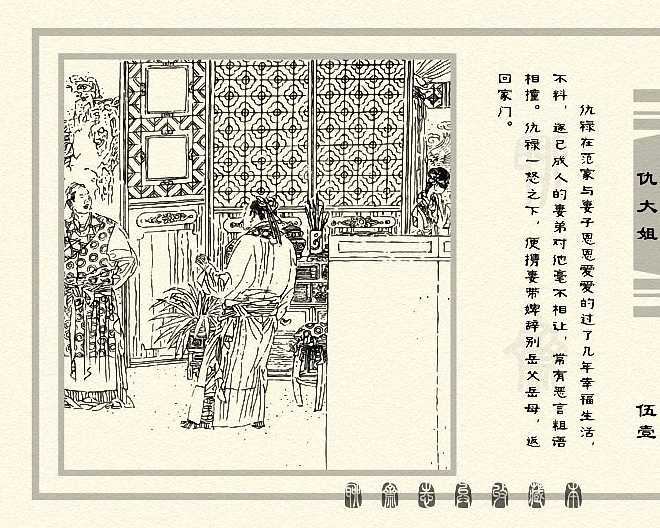 仇禄在范家与妻子恩恩爱爱的过了几年幸福生活，
不料，逐已成人的妻弟对他毫不相让，常有恶言粗语
相撞。仇禄一怒之下，便携妻带婢辞别岳父岳母，返
回家门。
仇大姐
伍壹
聊斋志异收藏本